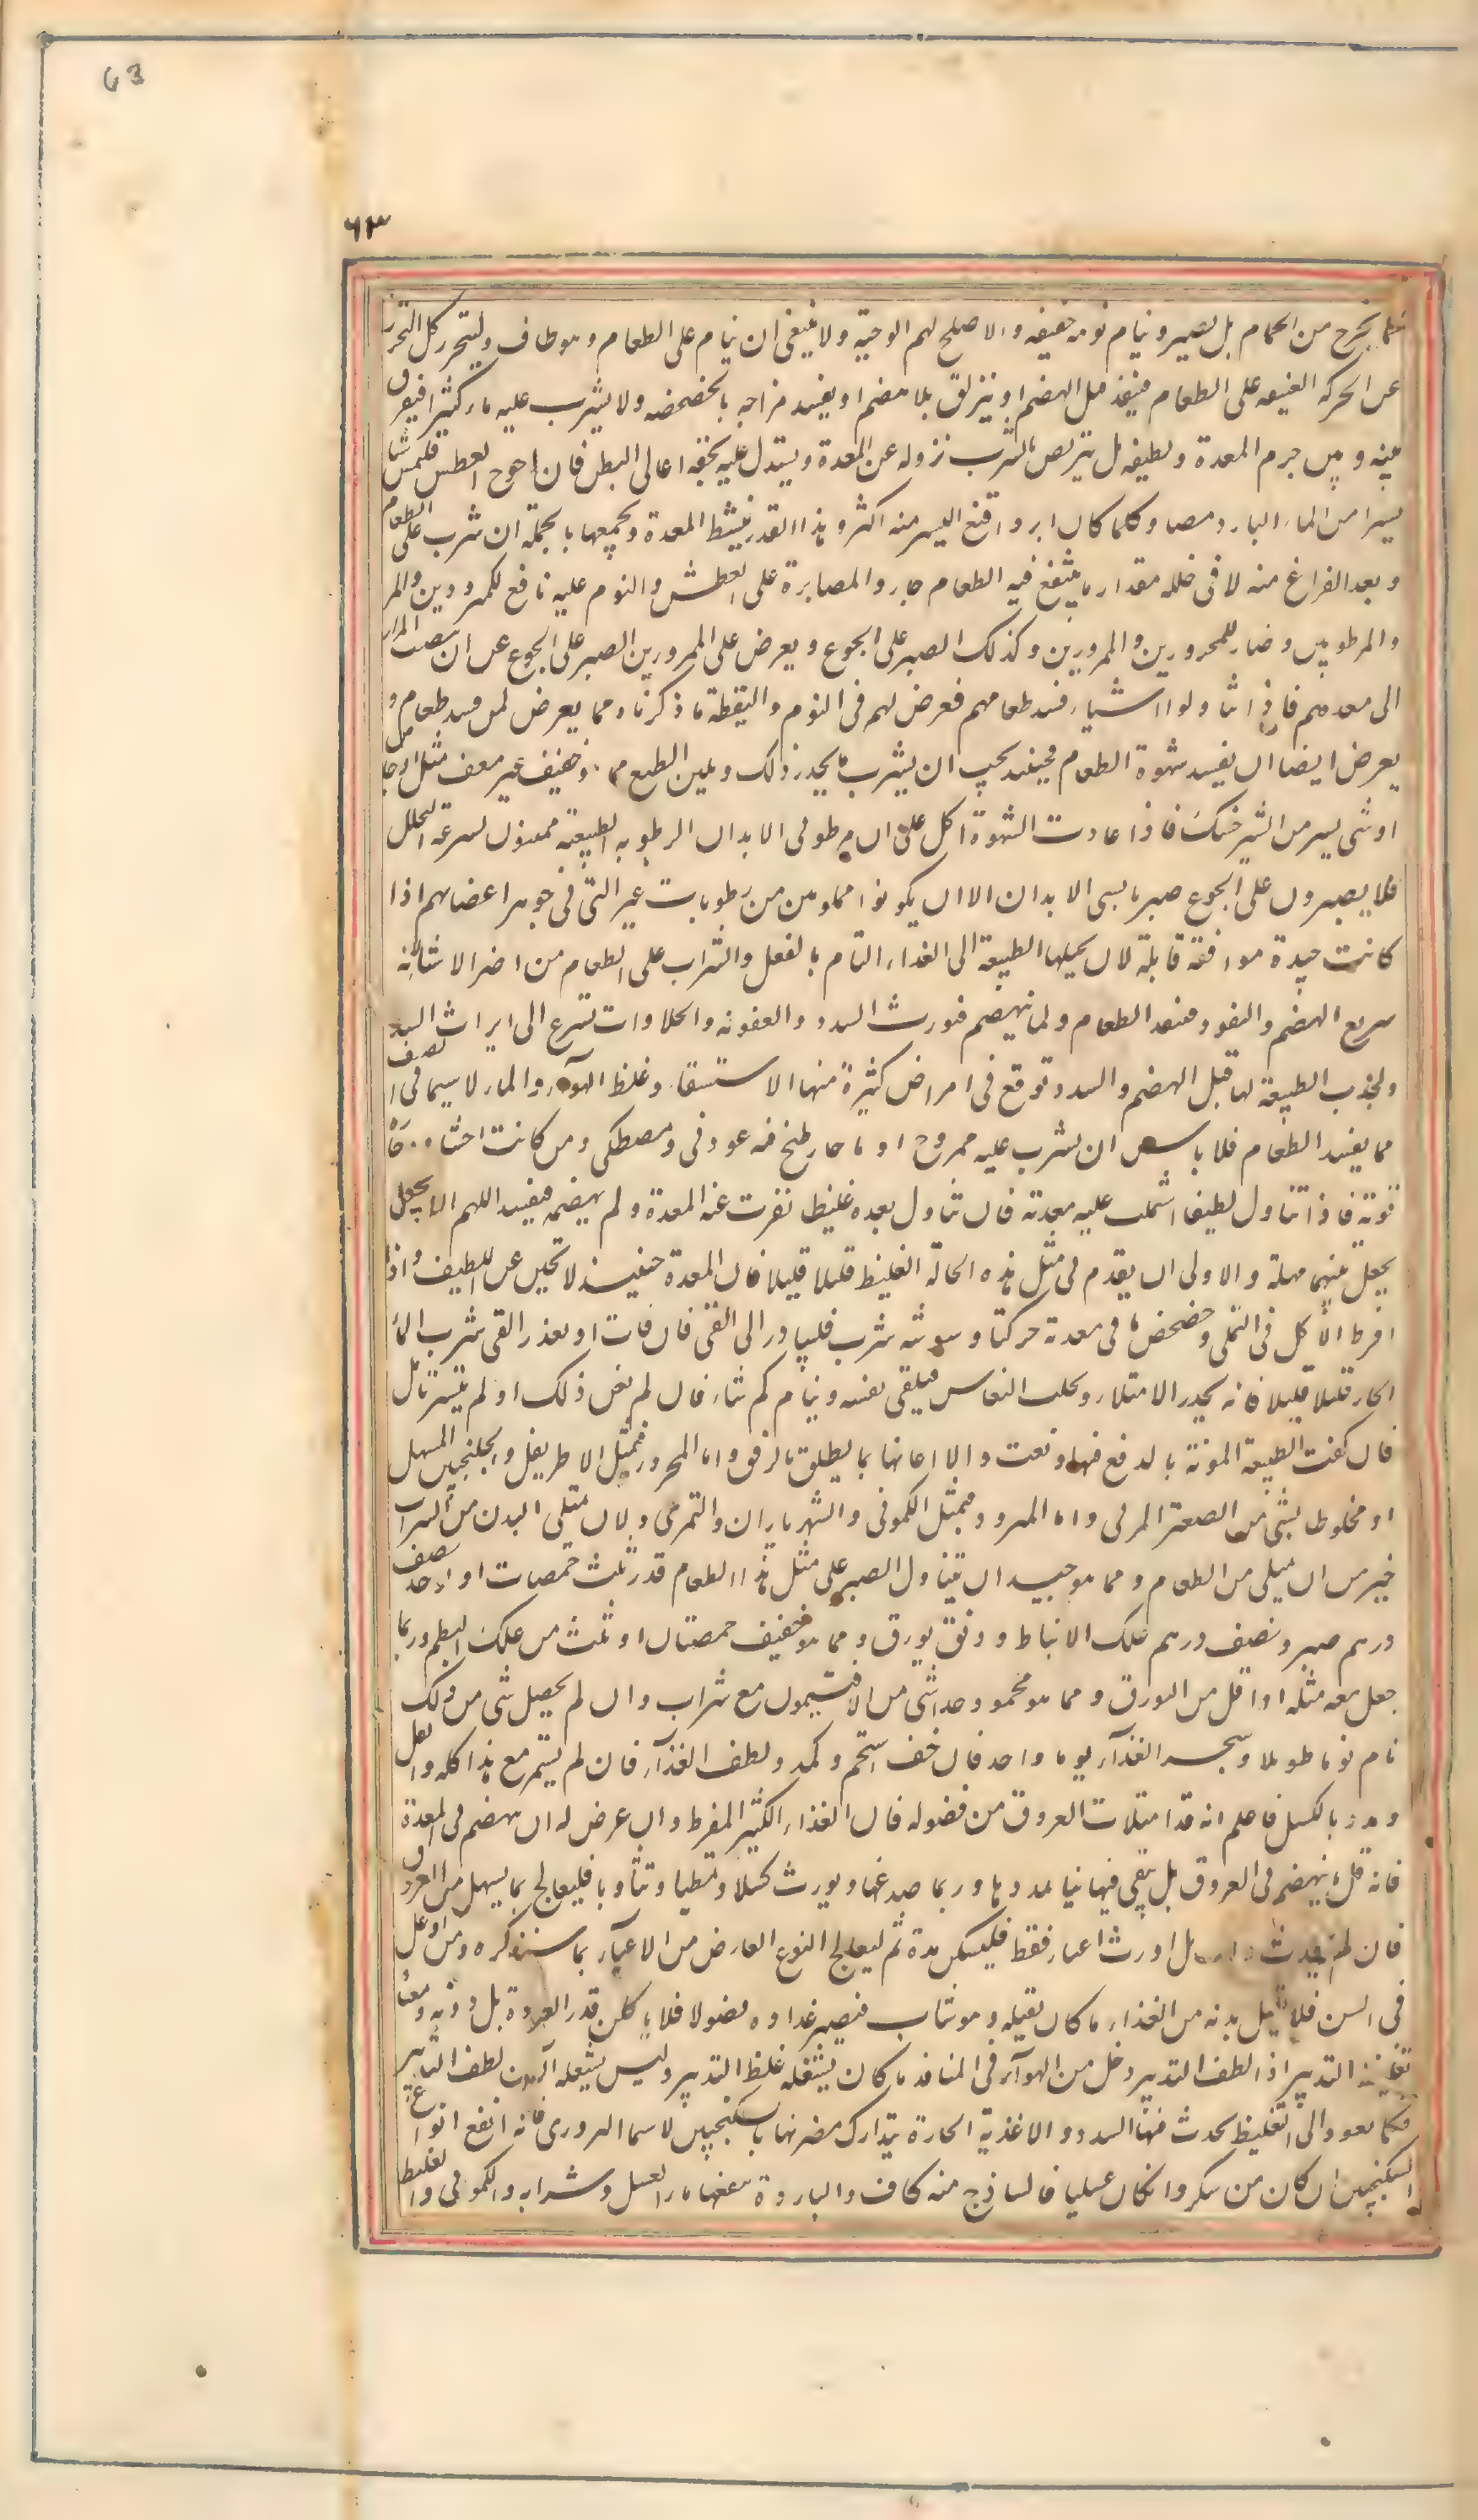 63
٦٣
كما يخرج من الحمام بل يصير وينام نومه خفيفه والاصلح لهم الوجبة ولا ينبغى ان ينام على الطعام وهو طاف وليتحرز كل التحرز
عن الحركه العنيفه على الطعام فينفذ قبل الهضم او ينزلق بلا هضم او يفسد مزاجه بالخضخضه ولا يشرب عليه ماء كثيرا فيفرق
بينه وبين جرم المعدة ويطيفه بل يتربص بالشرب نزوله عن المعدة ويستدل عليه بخفة اعالى البطن فان احوج العطش فليمص شيا
يسيرا من الماء البارد مصا وكلما كان ابرد اقنع اليسير منه اكثر وهذا القدر ينشط المعدة ويجمعها بالجملة ان شرب على الطعام
وبعد الفراغ منه لا فى خلله مقدار ما ينتفع فيه الطعام جاز والمصابرة على العطش والنوم عليه نافع للمبرودين والمر
والمرطوبين وضار للمحرورين والممرورين وكذلك الصبر على الجوع ويعرض على الممرورين الصبر على الجوع عن ان ينصب المرار
الى معدهم فاذا تناولوا شيئا فسد طعامهم فعرض لهم فى النوم واليقظة ما ذكرنا ومما يعرض لمن فسد طعامه و
يعرض ايضا ان يفسد شهوة الطعام فحينئذ يجب ان يشرب ما يحدر ذلك ويلين الطبع مما هو خفيف غير معنف مثل الاجاص
او شى يسير من الشيرخشك فاذا عادت الشهوة اكل على ان مرطوبى الابدان الرطوبه الطبيعة ممنون لسرعة التحلل
فلا يصبرون على الجوع صبر يابسى الابدان الا ان يكونوا مملوين من رطوبات غير التى فى جوهر اعضائهم اذا
كانت جيدة موافقه قابلة لان يحيلها الطبيعة الى الغذاء التام بالفعل والشراب على الطعام من اضر الاشيا لانه
سريع الهضم والنفوذ فينفذ الطعام ولما ينهضم فيورث السدد والعفونه والحلاوات تسرع الى ايراث السدد
ولجذب الطبيعة لها قبل الهضم والسدد توقع فى امراض كثيرة منها الاستسقاء وغلظ الهوآء والماء لا سيما فى الصيف
مما يفسد الطعام فلا باس ان يشرب عليه ممزوج او ما حار طبخ فيه عود فى ومصطكى ومن كانت احشاؤه حارة
قوية فاذا تناول لطيفا اشتملت عليه معدته فان تناول بعده غليظ نفرت عنه المعدة ولم يهضمه فيفسد اللهم الا ان يجعل
يجعل بينهما مهلة والاولى ان يقدم فى مثل هذه الحالة الغليظ قليلا قليلا فان المعدة حينئذ لا تجبن عن اللطيف واذا
افرط الاكل فى التملى وخضخض ما فى معدته حركتا وسوسه شرب فليبادر الى القى فان فات او تعذر القى شرب الماء
الحار قليلا قليلا فانه يحدر الامتلاء ويجلب النعاس فيلقى نفسه وينام كم شاء فان لم يغن ذلك او لم يتيسر تامل
فان كفت الطبيعة المونة بالدفع فبها ونعمت والا اعانها بما يطلق بالرفق واما المحرور فبمثل الاطريفل والجلنجبين المسهل
او مخلوط بشى من الصعتر المربى واما المبرود فبمثل الكمونى والشهرياران والتمرى ولان يمتلى البدن من الشراب
خير من ان يمتلى من الطعام ومما هو جيد ان يتناول الصبر على مثل هذا الطعام قدر ثلث حمصات او ياخذ نصف
درهم صبر ونصف درهم علك الانباط ودانق بورق ومما هو خفيف حمصتان او ثلث من علك البطم وربما
جعل معه مثله او اقل من البورق ومما هو محمود جدا شى من الافتيمون مع شراب وان لم يحصل شى من ذلك
نام نوما طويلا وهجر الغذآء يوما واحد فان خف استحم وكمد ولطف الغذآء فان لم يستمر مع هذا كله واثقل
ومدد بالكسل فاعلم انه قد امتلات العروق من فضوله فان الغذاء الكثير المفرط وان عرض له ان ينهضم فى المعدة
فانه قل ما ينهضم فى العروق بل يبقى فيها نيا يمددها وربما صدعها ويورث كسلا وتمطيا وتثاوبا فليعالج بما يسهل من العروق
فان لم يحدث ذلك بل اورث اعياء فقط فليسكن مدة ثم ليعالج النوع العارض من الاعيآء بما سنذكره ومن اوغل
فى السن فلا يقبل بدنه من الغذاء ما كان يقبله وهو شاب فيصير غذاؤه فضولا فلا ياكلن قدر العادة بل دونه ومعتاد
تغليظ التدبير اذا لطف التدبير دخل من الهوآء فى المنافذ ما كان يشغله غلظ التدبير وليس يشغله الآن لطف التدبير
فكما يعود الى التغليظ يحدث فيها السدد والاغذية الحارة يتدارك مضرتها بالسكنجبين لا سيما البزورى فانه انفع انواع
السكنجبين ان كان من سكر وان كان عسليا فالساذج منه كاف والباردة يتبعها ماء العسل وشرابه والكمونى والغليظ